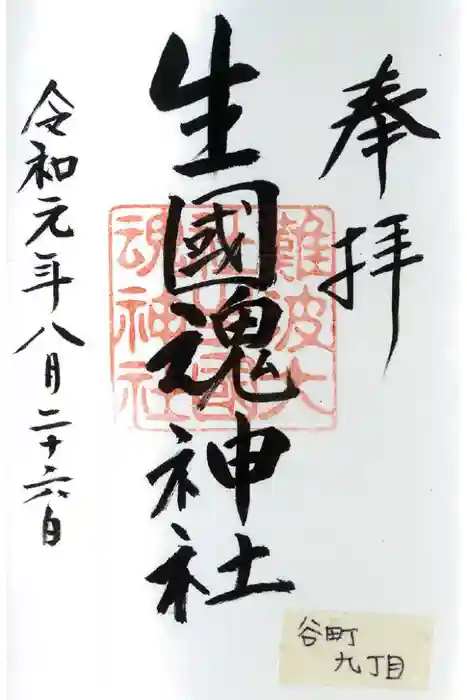 奉拝
生國魂神社
難波大
社生國
魂神社
令和元年八月二十六日
谷町
九丁目